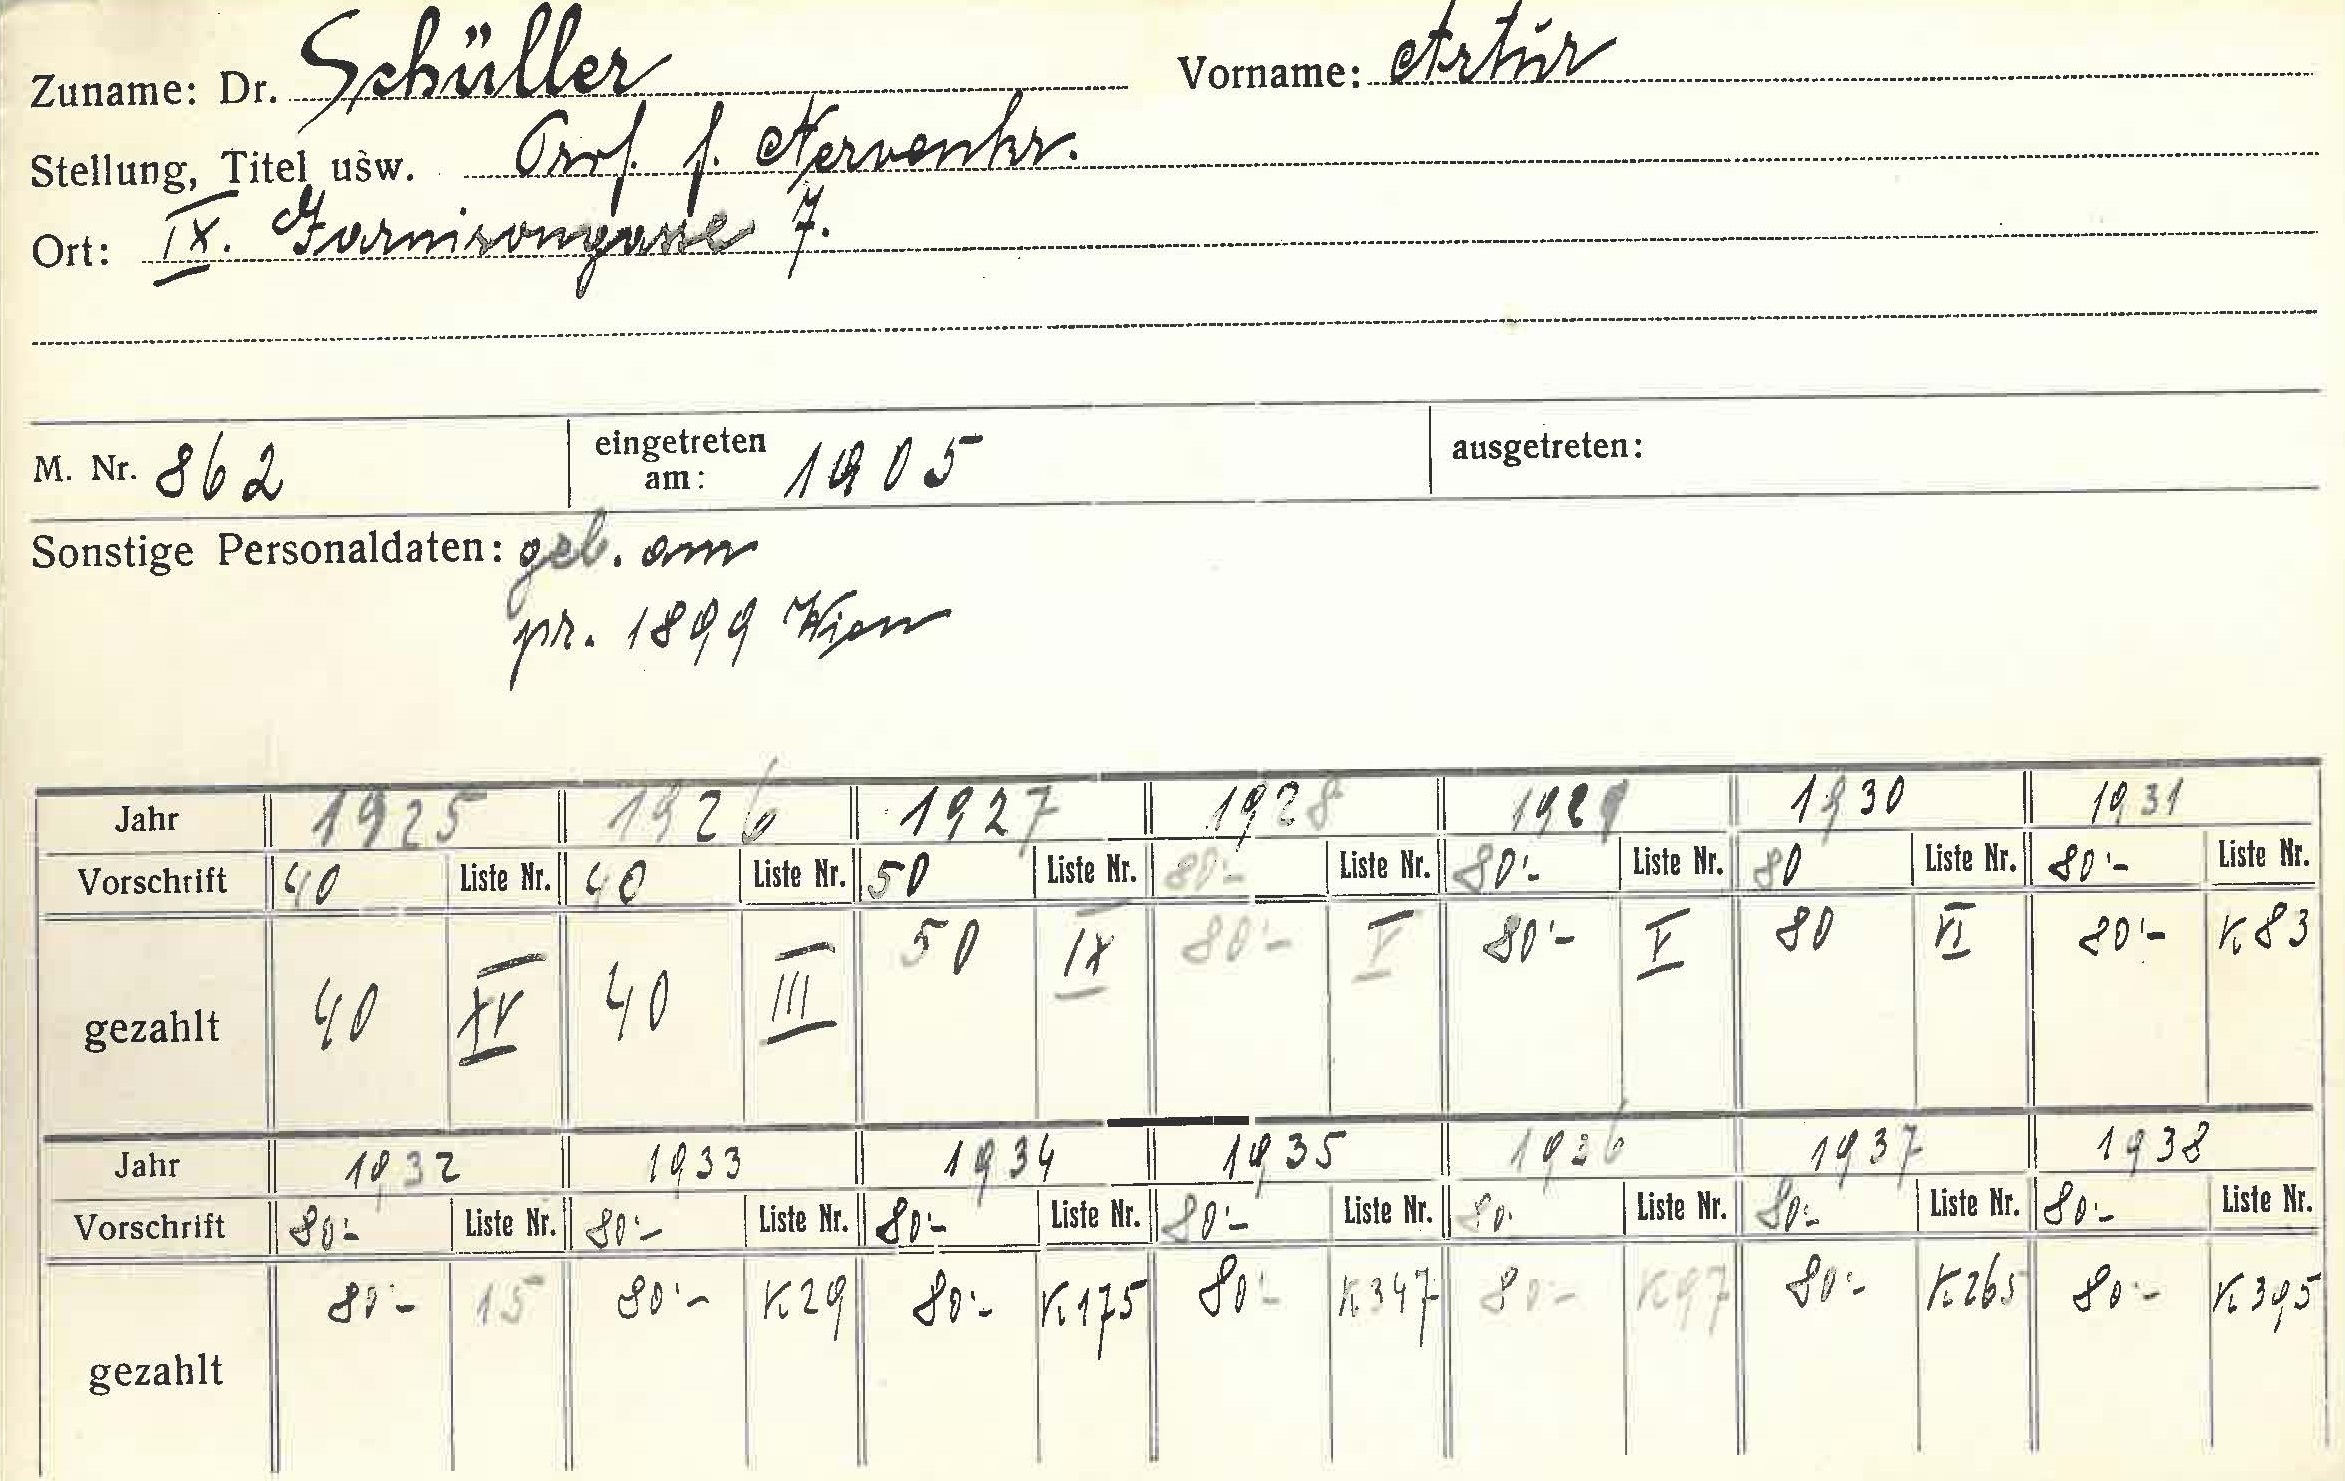 Zuname: Dr. Schüller Vorname: Artur
Stellung, Titel usw. Prof. f. Nervenkr.
Ort: IX. Garnisongasse 7.
M. Nr. 862 eingetreten am: 1905 ausgetreten:
Sonstige Personaldaten: geb. am
pr. 1899 Wien
Jahr 1925 1926 1927 1928 1929 1930 1931
Vorschrift 40 Liste Nr. 40 Liste Nr. 50 Liste Nr. 80·- Liste Nr. 80·- Liste Nr. 80 Liste Nr. 80·- Liste Nr.
gezahlt 40 XV 40 III 50 IX 80·- V 80·- V 80 VI 80·- K 83
Jahr 1932 1933 1934 1935 1936 1937 1938
Vorschrift 80·- Liste Nr. 80·- Liste Nr. 80·- Liste Nr. 80·- Liste Nr. 80· Liste Nr. 80·- Liste Nr. 80·- Liste Nr.
gezahlt 80·- 15 80·- K 29 80·- K 175 80·- K 347 80·- K 97 80·- K 265 80·- K 395